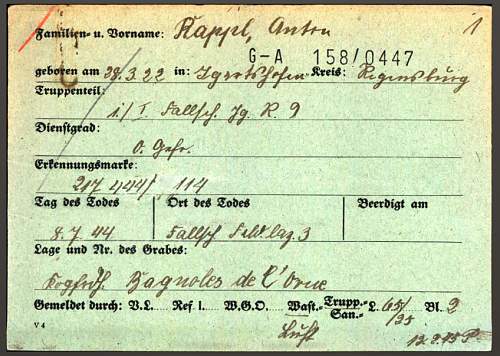 Familien- u. Vorname: Kappl, Anton 1
G-A 158/0447
geboren am 28.3.22 in: Igertshofen Kreis: Regensburg
Truppenteil:
i./I. Fallsch. Jg. R. 9
Dienstgrad:
O. Gefr.
Erkennungsmarke:
217 444/ 114
Tag des Todes Ort des Todes Beerdigt am
8.7.44 Fallsch Feldlaz. 3
Lage und Nr. des Grabes:
Bagnoles de l'Orne
Gemeldet durch: V.L. Ref I. W.G.O. Wast.- Trupp.- San.- L. 65/35 Bl. 2
Luft
V 4